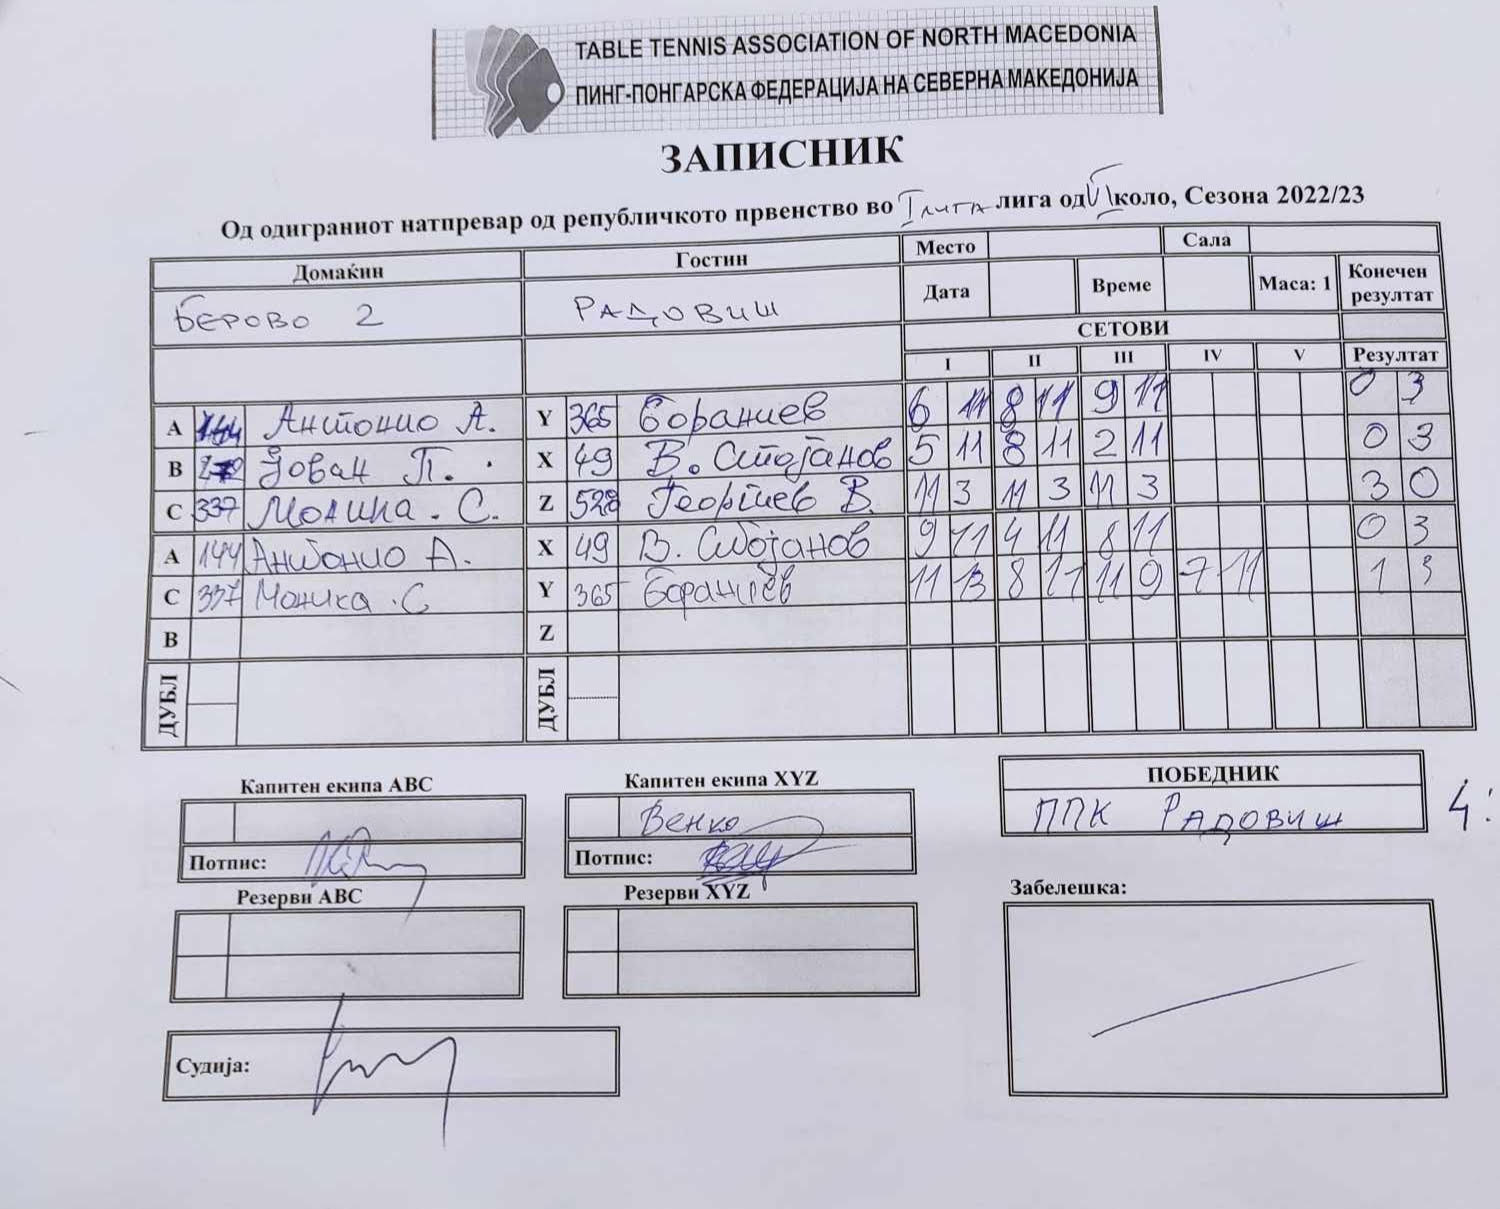 TABLE TENNIS ASSOCIATION OF NORTH MACEDONIA
ПИНГ-ПОНГАРСКА ФЕДЕРАЦИЈА НА СЕВЕРНА МАКЕДОНИЈА
ЗАПИСНИК
Од одиграниот натпревар од републичкото првенство во I лига лига од VI коло, Сезона 2022/23
Домаќин Гостин Место Сала
БЕРОВО 2 РАДОВИШ Дата Време Маса: 1 Конечен резултат
СЕТОВИ
I II III IV V Резултат
A 144 Антонио А. Y 365 Бораниев 6 11 8 11 9 11 0 3
B Јован П. X 49 В. Стојанов 5 11 8 11 2 11 0 3
C 337 Моника. С. Z 528 Георгиев В. 11 3 11 3 11 3 3 0
A 144 Антонио А. X 49 В. Стојанов 9 11 4 11 8 11 0 3
C 337 Моника. С Y 365 Бораниев 11 13 8 11 11 9 7 11 1 3
B Z
ДУБЛ ДУБЛ
Капитен екипа ABC Капитен екипа XYZ ПОБЕДНИК
Венко ППК РАДОВИШ 4:
Потпис: Потпис:
Резерви ABC Резерви XYZ Забелешка:
Судија: